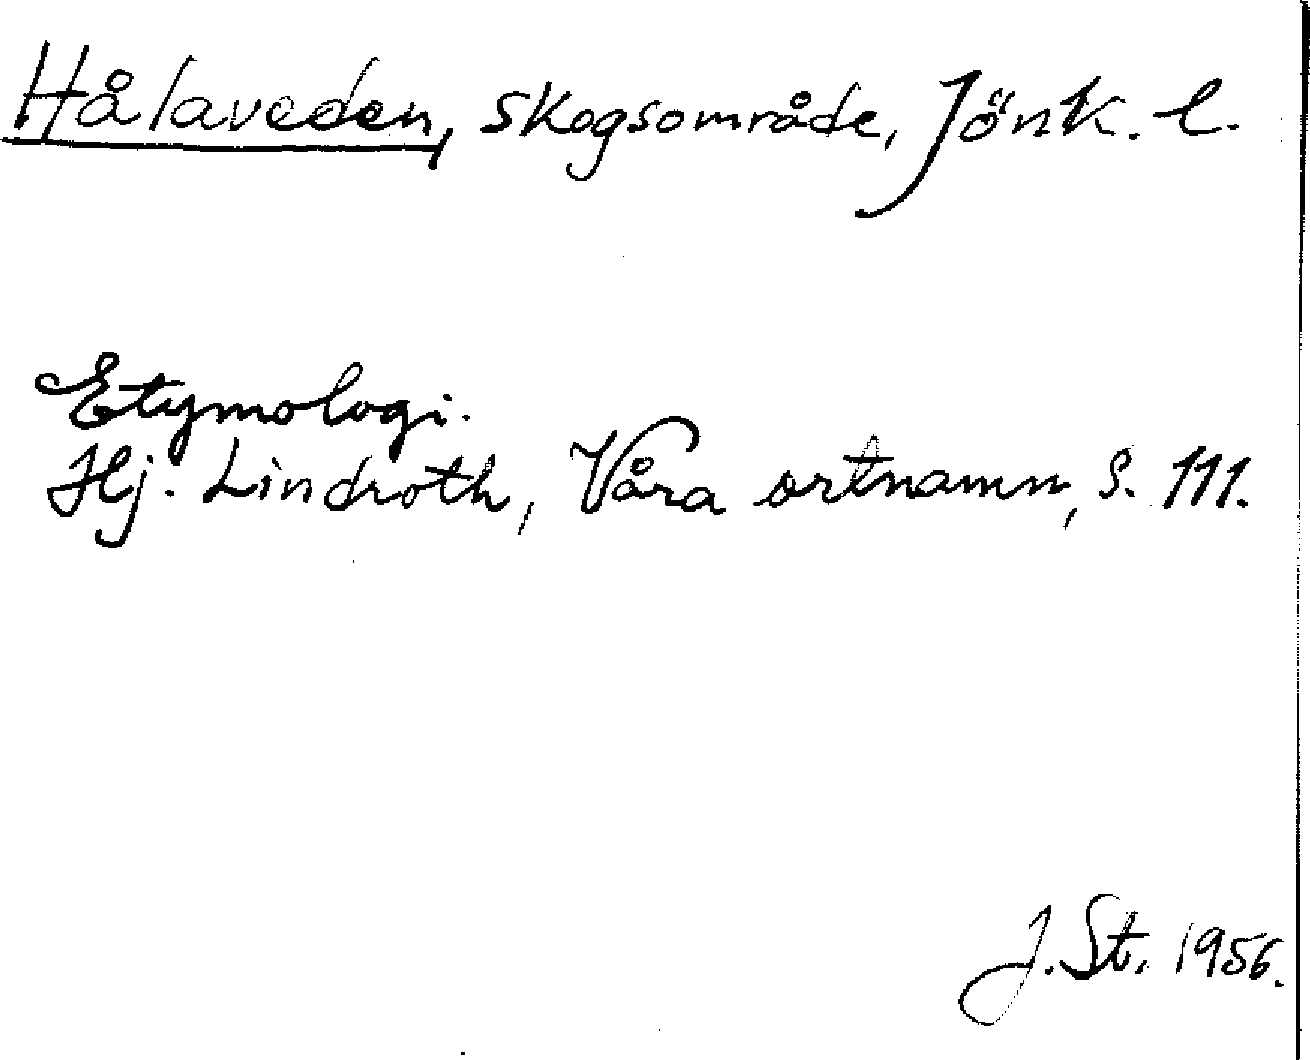 Hålaveden, skogsområde, Jönk. l.
Etymologi.
Hj. Lindroth, Våra ortnamn, s. 111.
J. St. 1956.